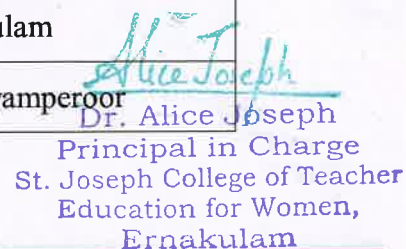 ulam
Alice Joseph
amperoor
Dr. Alice Joseph
Principal in Charge
St. Joseph College of Teacher
Education for Women,
Ernakulam